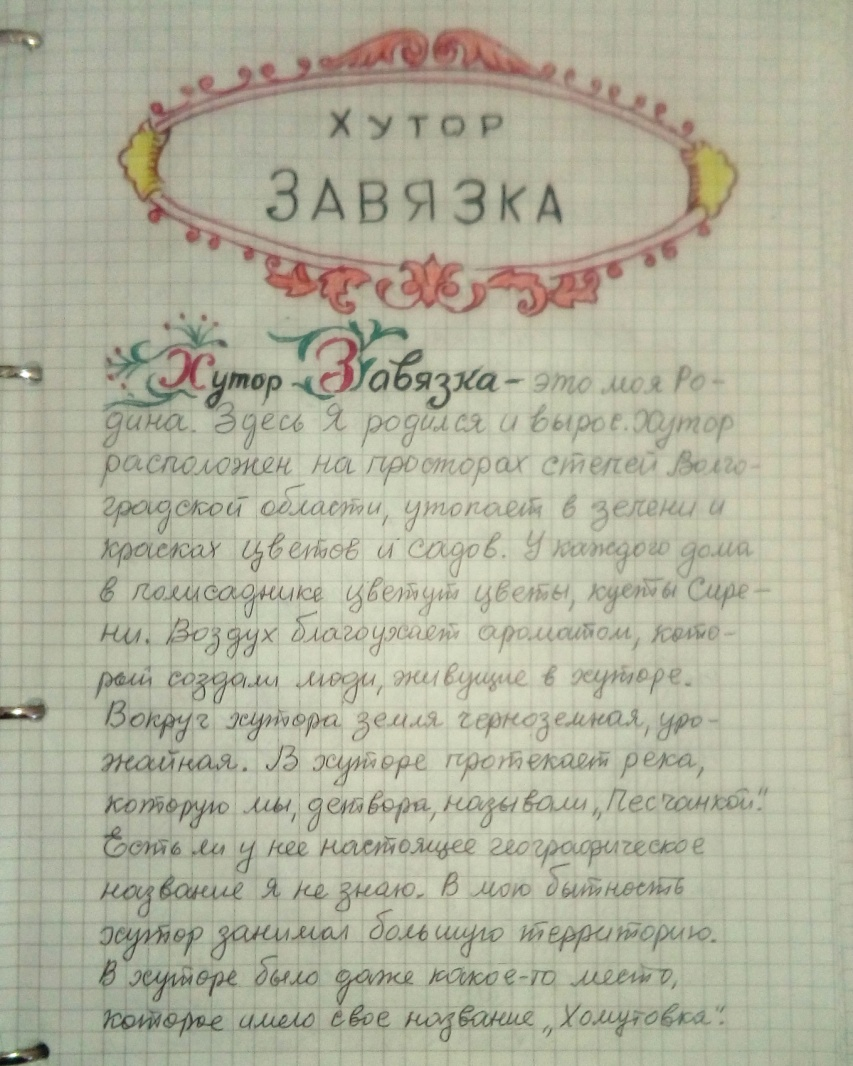 ХУТОР
ЗАВЯЗКА
Хутор Завязка – это моя Ро-
дина. Здесь Я родился и вырос. Хутор
расположен на просторах степей Волго-
градской области, утопает в зелени и
красках цветов и садов. У каждого дома
в полисаднике цветут цветы, кусты Сире-
ни. Воздух благоухает ароматом, кото-
рый создали люди, живущие в хуторе.
Вокруг хутора земля черноземная, уро-
жайная. В хуторе протекает река,
которую мы, детвора, называли „Песчанкой".
Есть ли у нее настоящее географическое
название я не знаю. В мою бытность
хутор занимал большую территорию.
В хуторе было даже какое-то место,
которое имело свое название „Хомутовка".